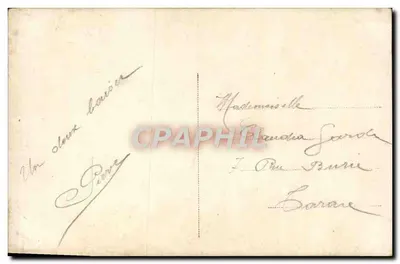 Un doux baiser
Pierre
Mademoiselle
Claudia Garde
7 Rue Burie
Tarare
CPAPHIL